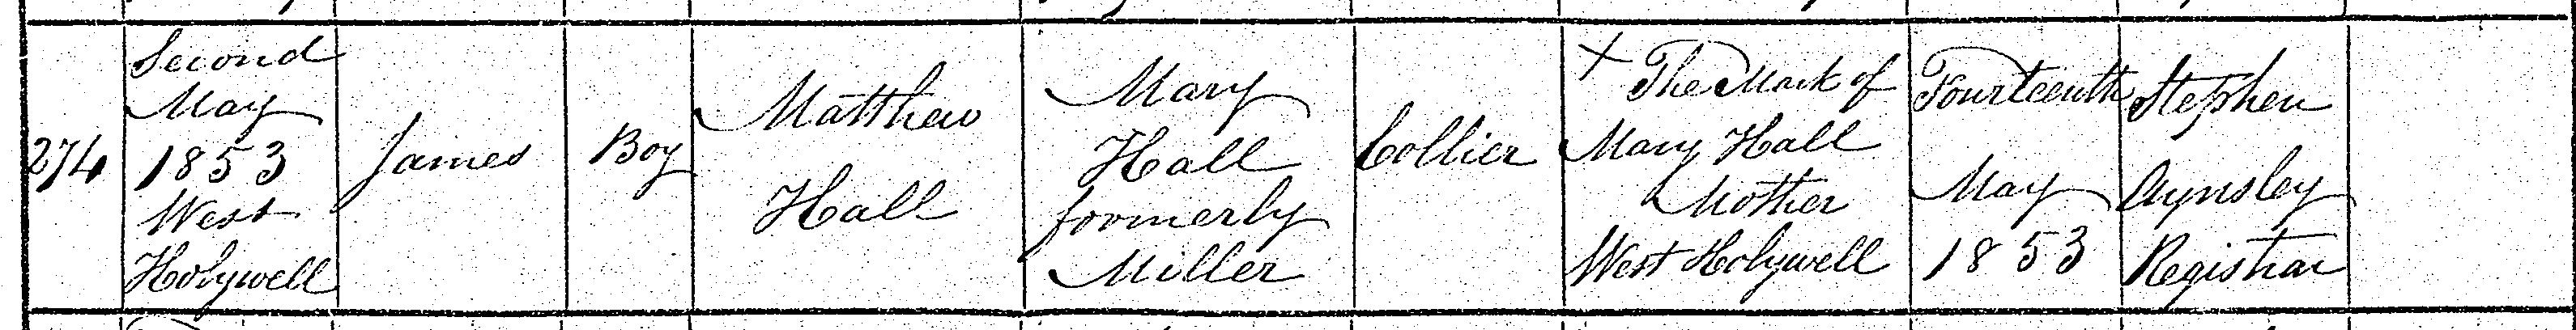 274
Second
May
1853
West
Holywell
James
Boy
Matthew
Hall
Mary
Hall
formerly
Miller
Collier
X The Mark of
Mary Hall
Mother
West Holywell
Fourteenth
May
1853
Stephen
Aynsley
Registrar